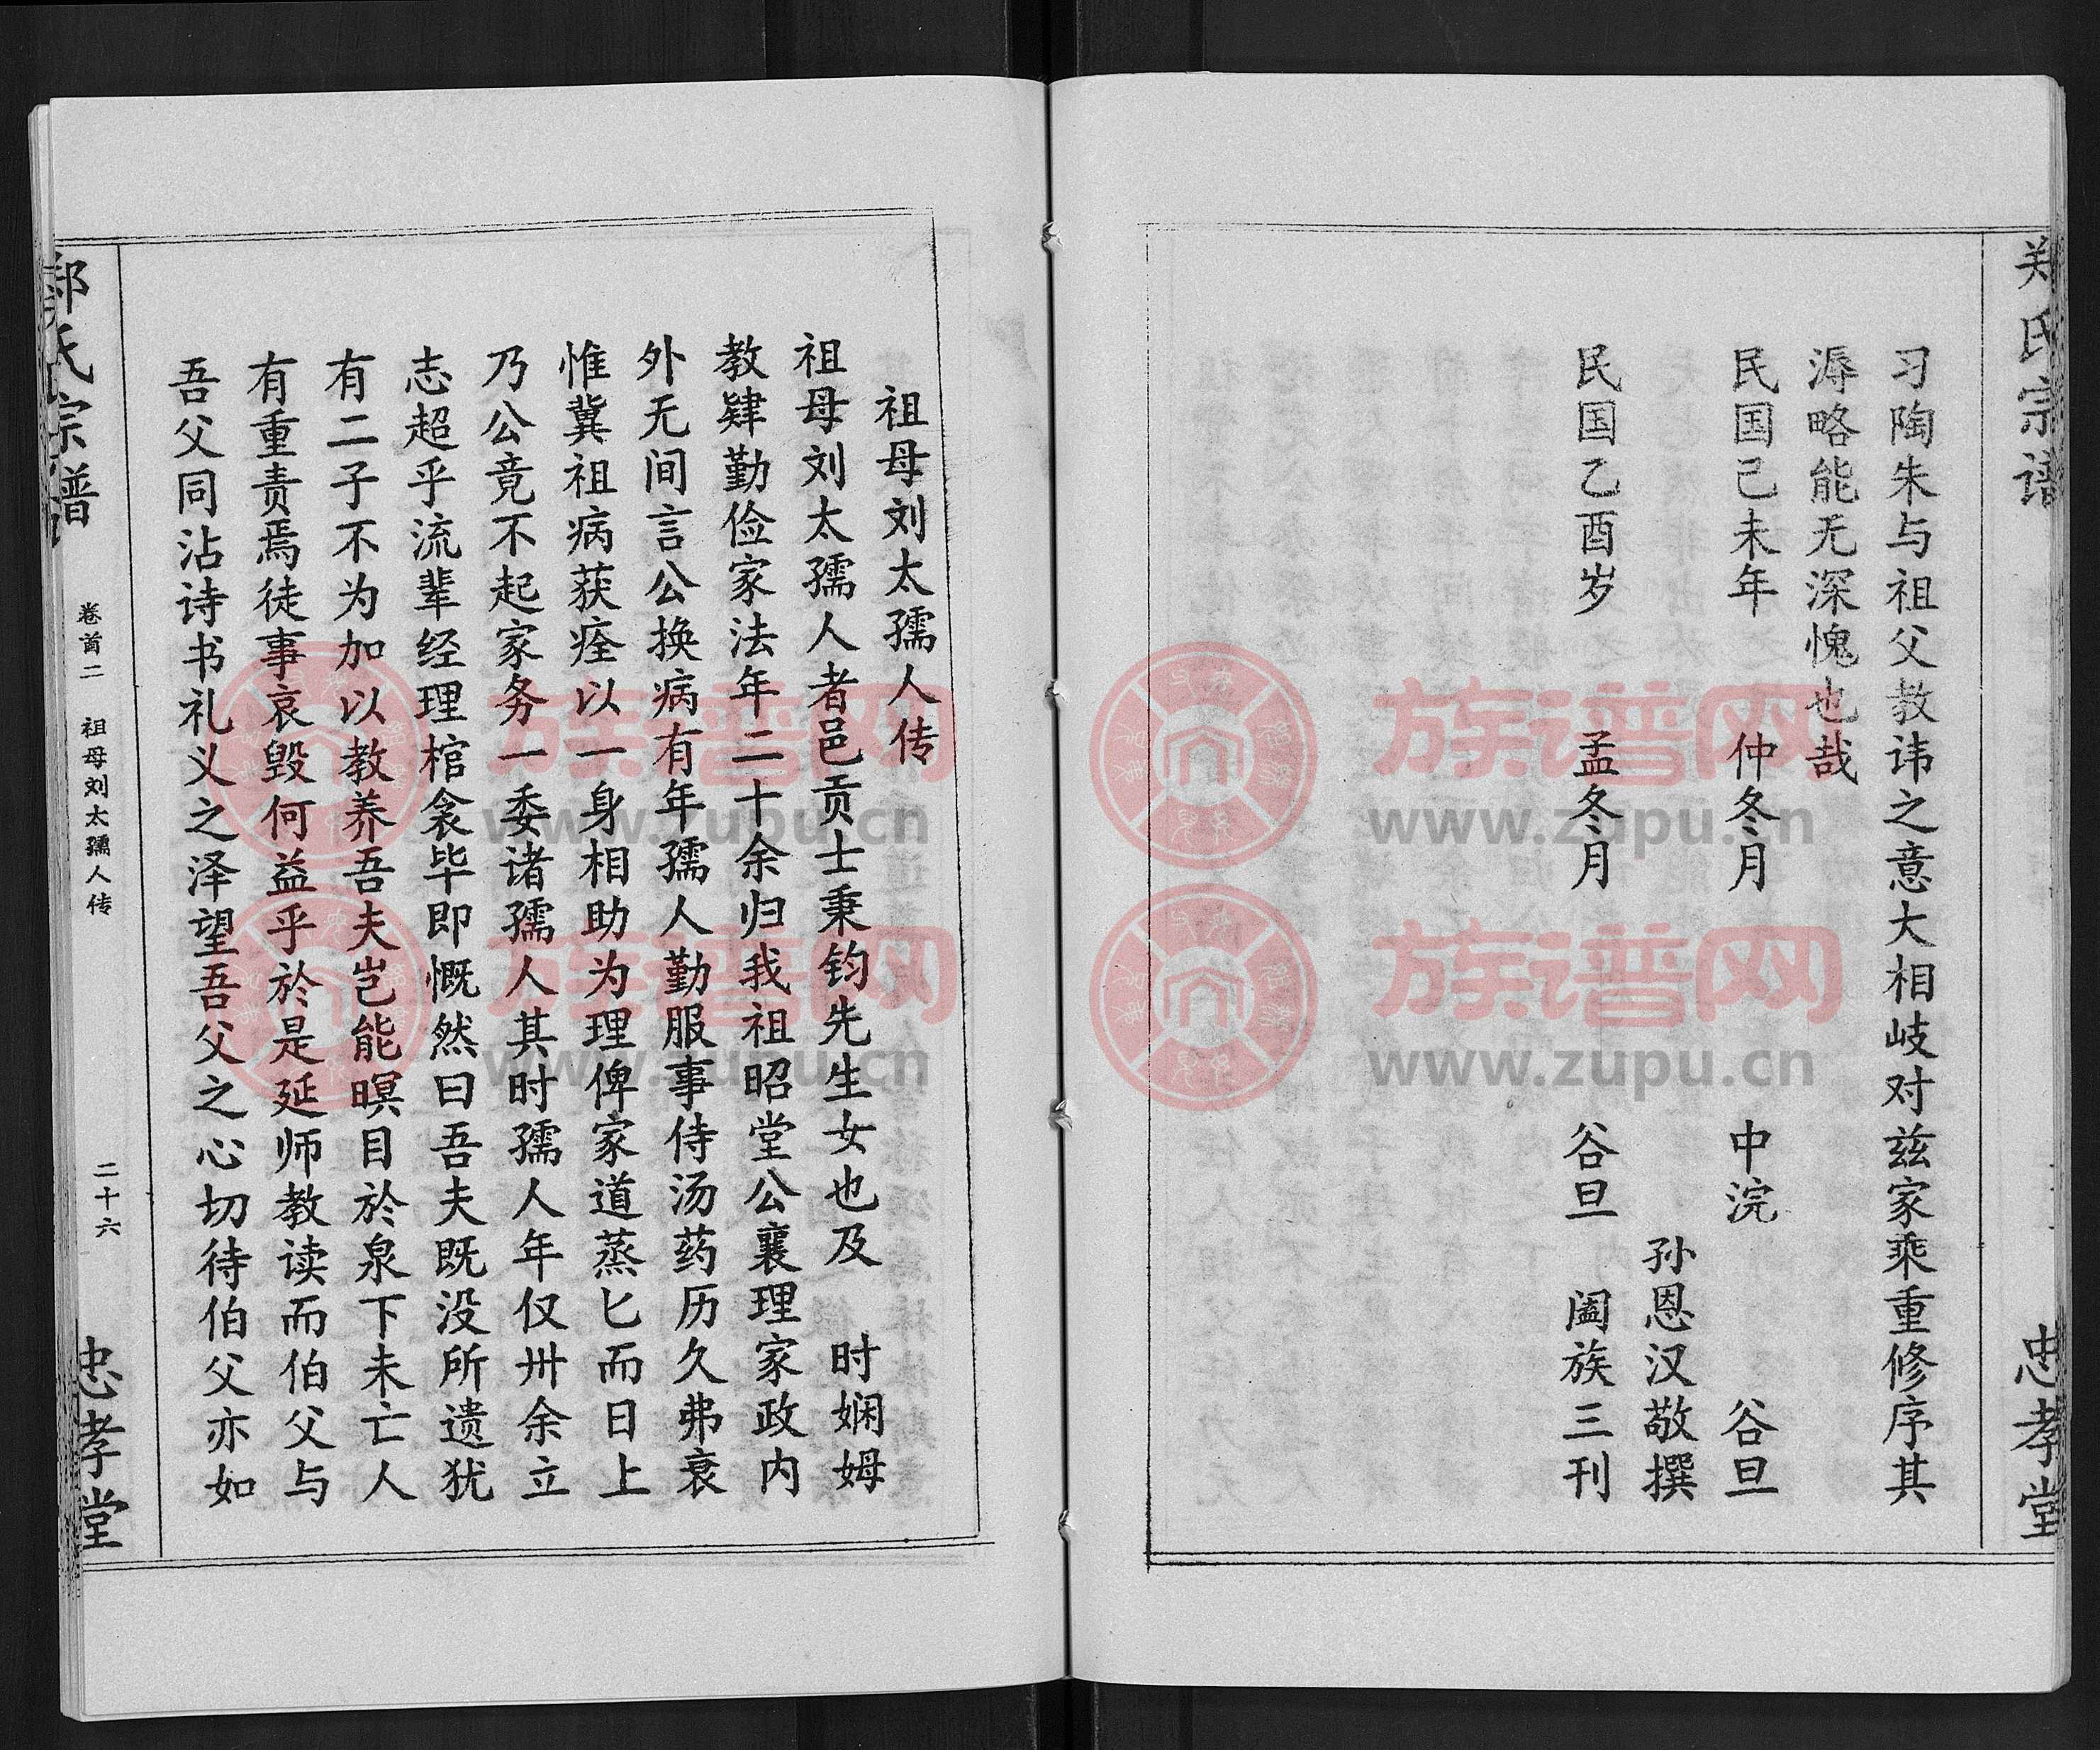 郑氏宗谱
忠孝堂
习陶朱与祖父教讳之意大相岐对兹家乘重修序其
溽略能无深愧也哉
民国己未年　仲冬月　中浣　谷旦
孙恩汉敬撰
民国乙酉岁　孟冬月　谷旦　阖族三刊
祖母刘太孺人传
祖母刘太孺人者邑贡士秉钧先生女也及　时娴姆
教肄勤俭家法年二十余归我祖昭堂公襄理家政内
外无间言公换病有年孺人勤服事侍汤药历久弗衰
惟冀祖病获痊以一身相助为理俾家道蒸匕而日上
乃公竟不起家务一委诸孺人其时孺人年仅卅余立
志超乎流辈经理棺衾毕即慨然曰吾夫既没所遗犹
有二子不为加以教养吾夫岂能暝目於泉下未亡人
有重责焉徒事哀毁何益乎於是延师教读而伯父与
吾父同沾诗书礼义之泽望吾父之心切待伯父亦如
郑氏宗谱
卷首二　祖母刘太孺人传
二十六
忠孝堂
族谱网
www.zupu.cn
族谱网
www.zupu.cn
族谱网
www.zupu.cn
族谱网
www.zupu.cn